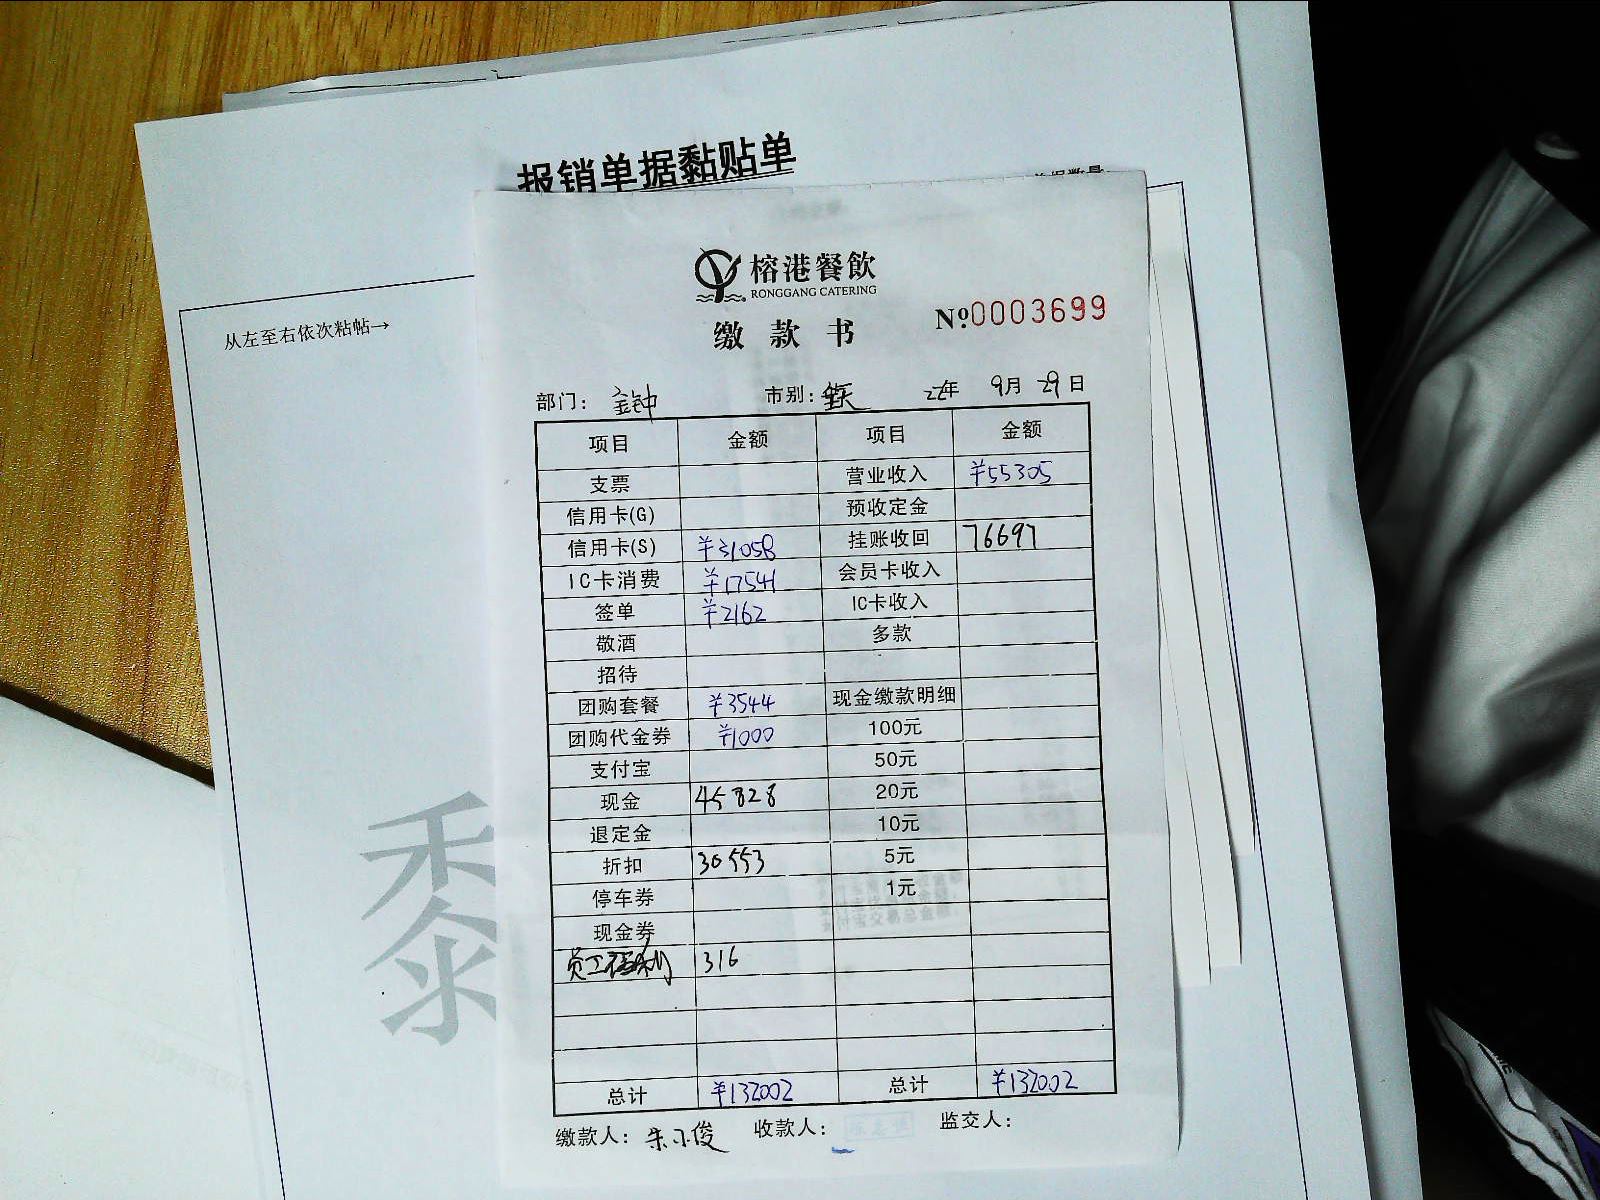 报销单据黏贴单
单据数量
从左至右依次粘帖→
榕港餐飲
RONGGANG CATERING
缴款书
№0003699
部门: 金钟 市别: 全天 年 9月 29日
项目 金额 项目 金额
支票 营业收入 ¥55305
信用卡(G) 预收定金
信用卡(S) ¥31058 挂账收回 76697
IC卡消费 ¥17541 会员卡收入
签单 ¥2162 IC卡收入
敬酒 多款
招待
团购套餐 ¥3544 现金缴款明细
团购代金券 ¥1000 100元
支付宝 50元
现金 45828 20元
退定金 10元
折扣 30553 5元
停车券 1元
现金券
员工福利 316
总计 ¥132002 总计 ¥132002
缴款人: 朱小俊 收款人: 监交人:
黍